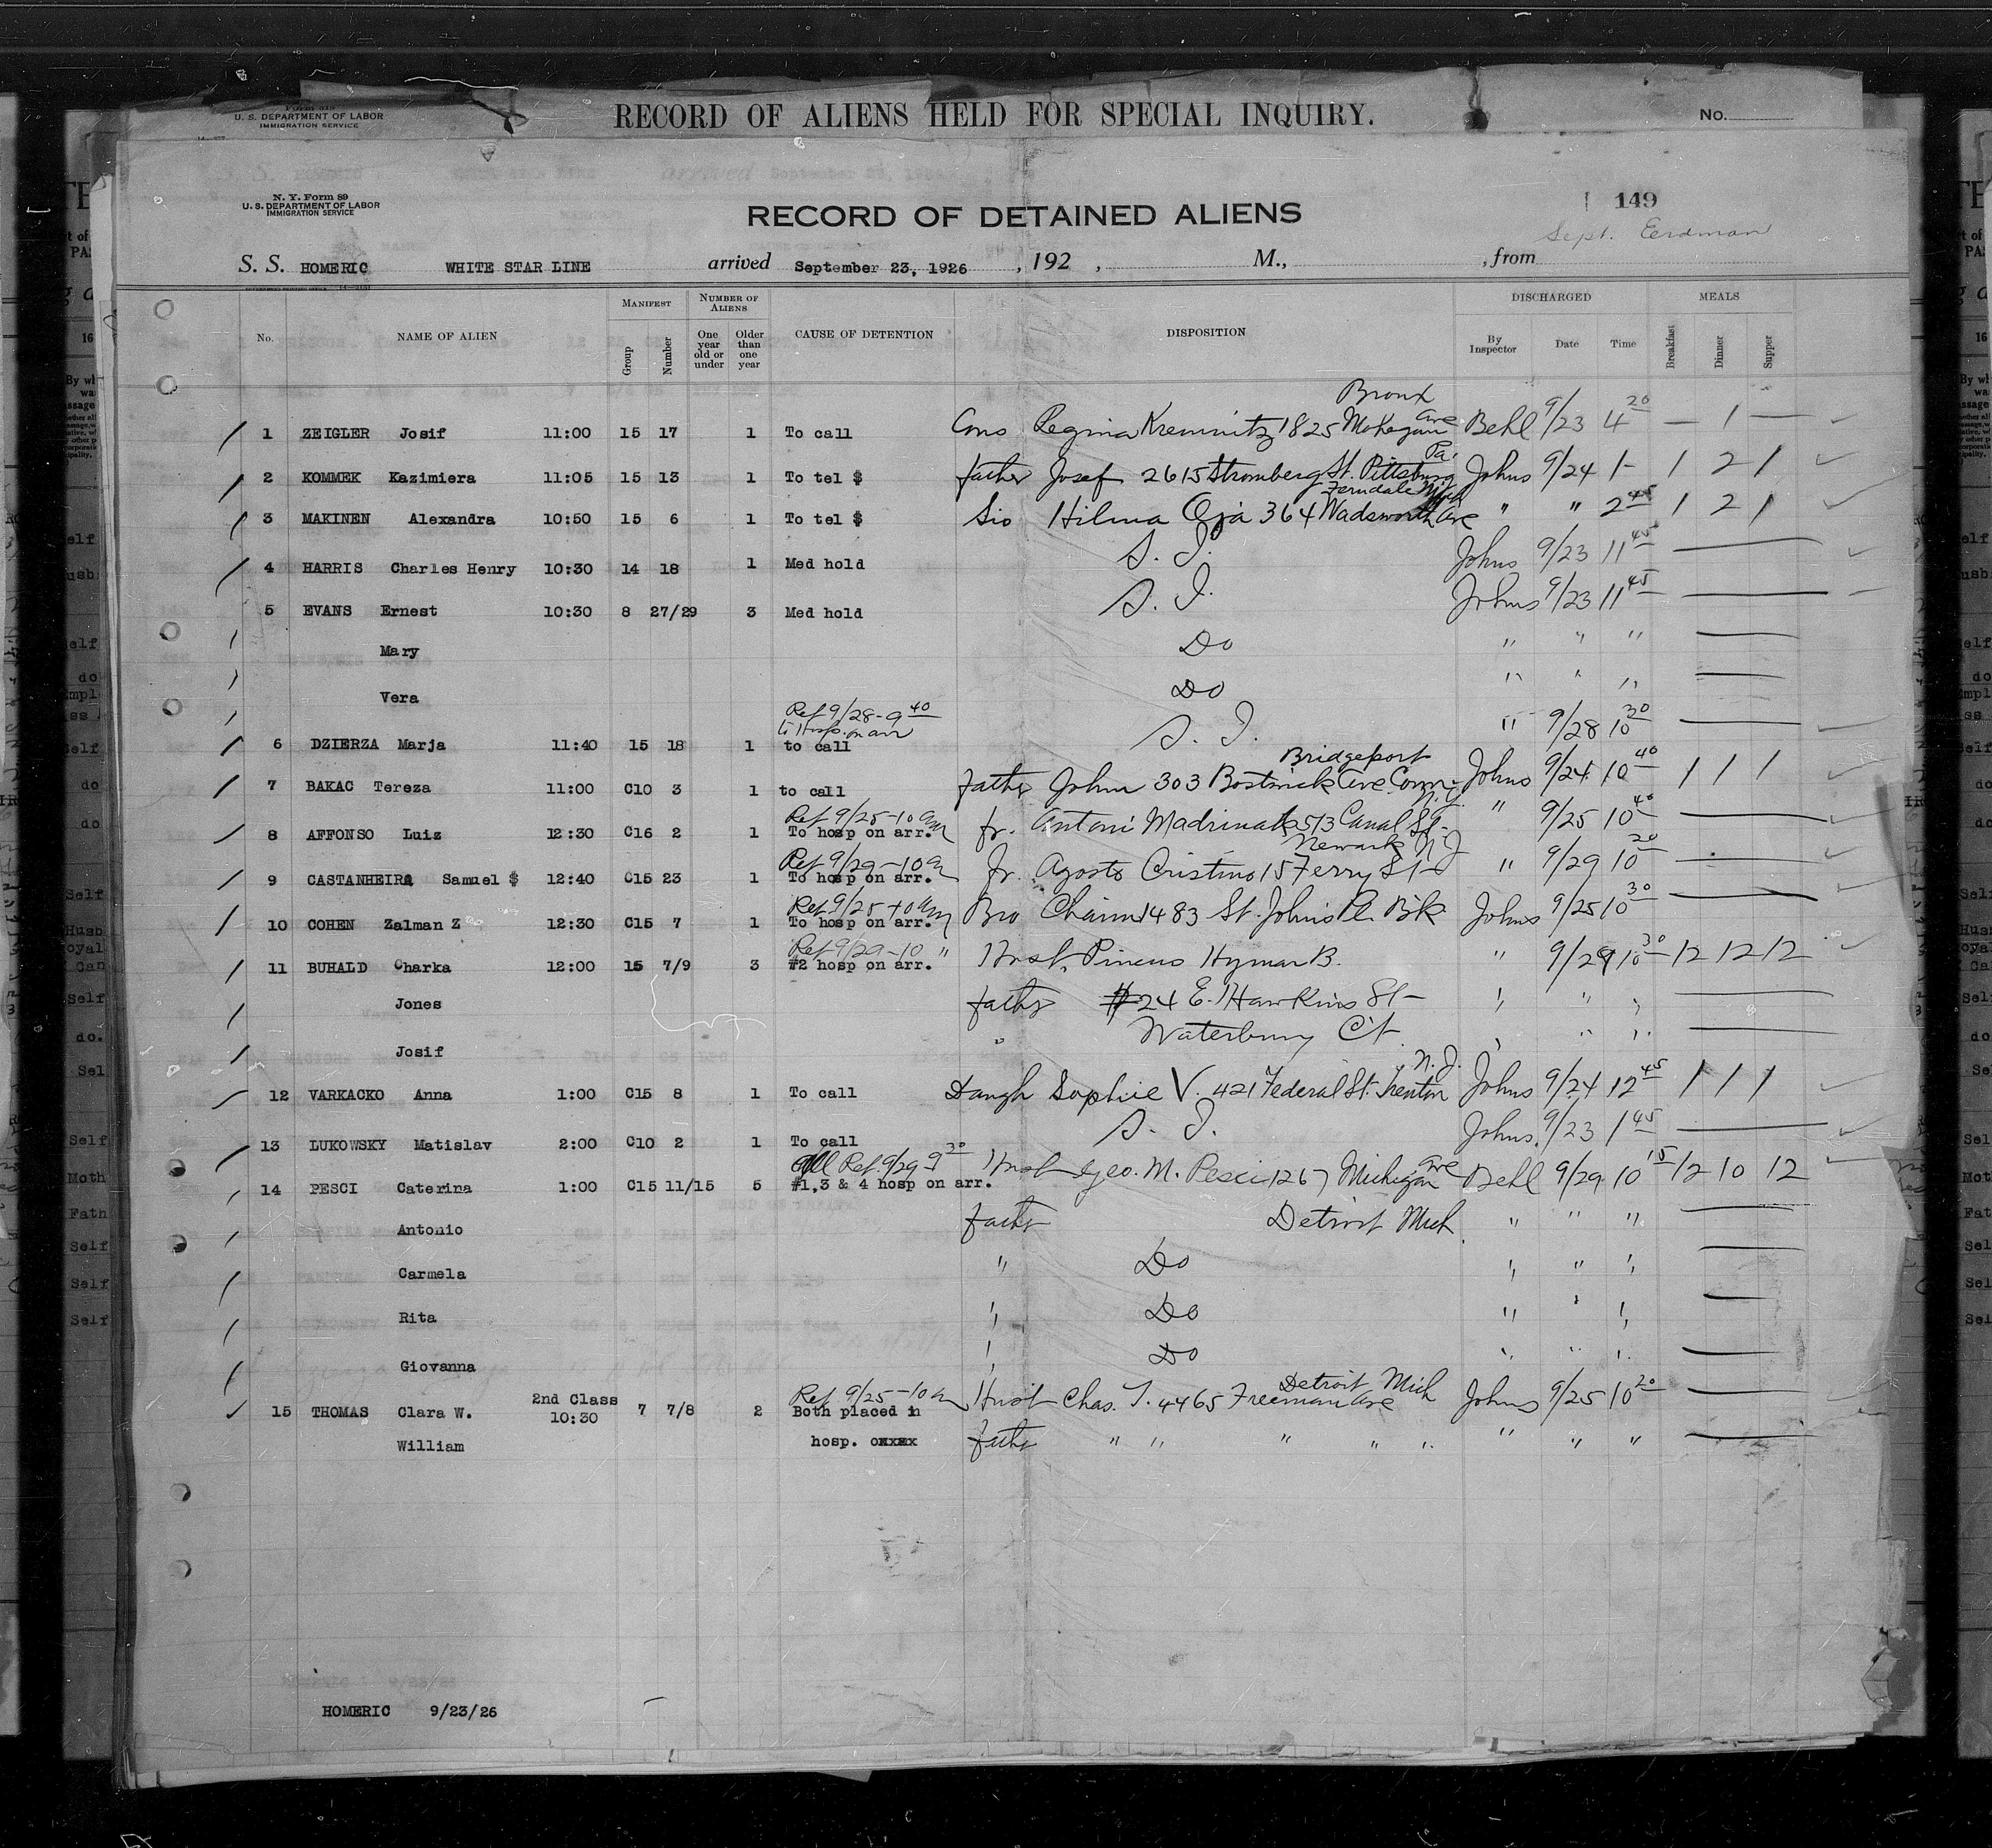 Form 819
U. S. DEPARTMENT OF LABOR
IMMIGRATION SERVICE
RECORD OF ALIENS HELD FOR SPECIAL INQUIRY.
No.
N. Y. Form 89
U. S. DEPARTMENT OF LABOR
IMMIGRATION SERVICE
RECORD OF DETAINED ALIENS
149
Sept. Eerdman
S. S. HOMERIC WHITE STAR LINE arrived September 23, 1926, 192 , M., , from
No. NAME OF ALIEN MANIFEST Group Number NUMBER OF ALIENS One year old or under Older than one year CAUSE OF DETENTION DISPOSITION DISCHARGED By Inspector Date Time MEALS Breakfast Dinner Supper
Bronx
1 ZEIGLER Josif 11:00 15 17 1 To call Cous Regina Kremnitz 1825 Mohegan Ave Behl 9/23 4 20 — 1 —
Pa.
2 KOMMEK Kazimiera 11:05 15 13 1 To tel $ father Josef 2615 Stromberg St. Pittsburg Johns 9/24 1- 1 2 1
Ferndale Mich
3 MAKINEN Alexandra 10:50 15 6 1 To tel $ Sis Hilma Oja 364 Wadsworth Ave " " 2 45 1 2 1
4 HARRIS Charles Henry 10:30 14 18 1 Med hold S. I. Johns 9/23 11 45 —
5 EVANS Ernest 10:30 8 27/29 3 Med hold S. I. Johns 9/23 11 45 —
Mary Do " " " —
Vera Do " " " —
Ret 9/28-9 40
to Hosp. on arr
6 DZIERZA Marja 11:40 15 18 1 to call S. I. " 9/28 10 30 —
Bridgeport
7 BAKAC Tereza 11:00 C10 3 1 to call father John 303 Bostwick Ave Conn. Johns 9/24 10 40 1 1 1
Ret 9/25-10 am N.Y.
8 AFFONSO Luiz 12:30 C16 2 1 To hosp on arr. fr. Antoni 513 Canal St- " 9/25 10 40 —
Ret 9/29-10 a Newark N J
9 CASTANHEIRA Samuel $ 12:40 C15 23 1 To hosp on arr. fr. Agosto Cristino 15 Ferry St- " 9/29 10 20 —
Ret 9/25 10 am
10 COHEN Zalman Z 12:30 C15 7 1 To hosp on arr. Bro Chaim 1483 St. Johns Pl. Bk Johns 9/25 10 30 —
Ret 9/29-10 "
11 BUHALD Charka 12:00 15 7/9 3 #2 hosp on arr. Husb. Pincus Hyman B. " 9/29 10 30 12 12 12
Jones father #24 E. Hawkins St- " " " —
Josif " Waterbury Ct. " " " —
N. J.
12 VARKACKO Anna 1:00 C15 8 1 To call Daugh Sophie V. 421 Federal St. Trenton Johns 9/24 12 45 1 1 1
13 LUKOWSKY Matislav 2:00 C10 2 1 To call S. I. Johns. 9/23 1 45 —
All Ret. 9/29 9 30
14 PESCI Caterina 1:00 C15 11/15 5 #1,3 & 4 hosp on arr. Husb Geo. M. Pesci 1267 Michigan Ave Behl 9/29 10 15 12 10 12
Antonio father Detroit Mich. " " " —
Carmela " Do " " " —
Rita " Do " " " —
Giovanna " Do " " " —
Ret 9/25-10 a Detroit Mich
15 THOMAS Clara W. 2nd Class 10:30 7 7/8 2 Both placed in Husb Chas. T. 4465 Freeman Ave Johns 9/25 10 20 —
William hosp. father " " " " " " " " —
HOMERIC 9/23/26